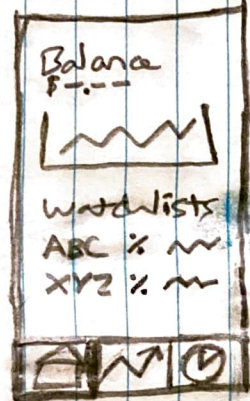 Balance
$--.--
Watchlists
ABC %
XYZ %